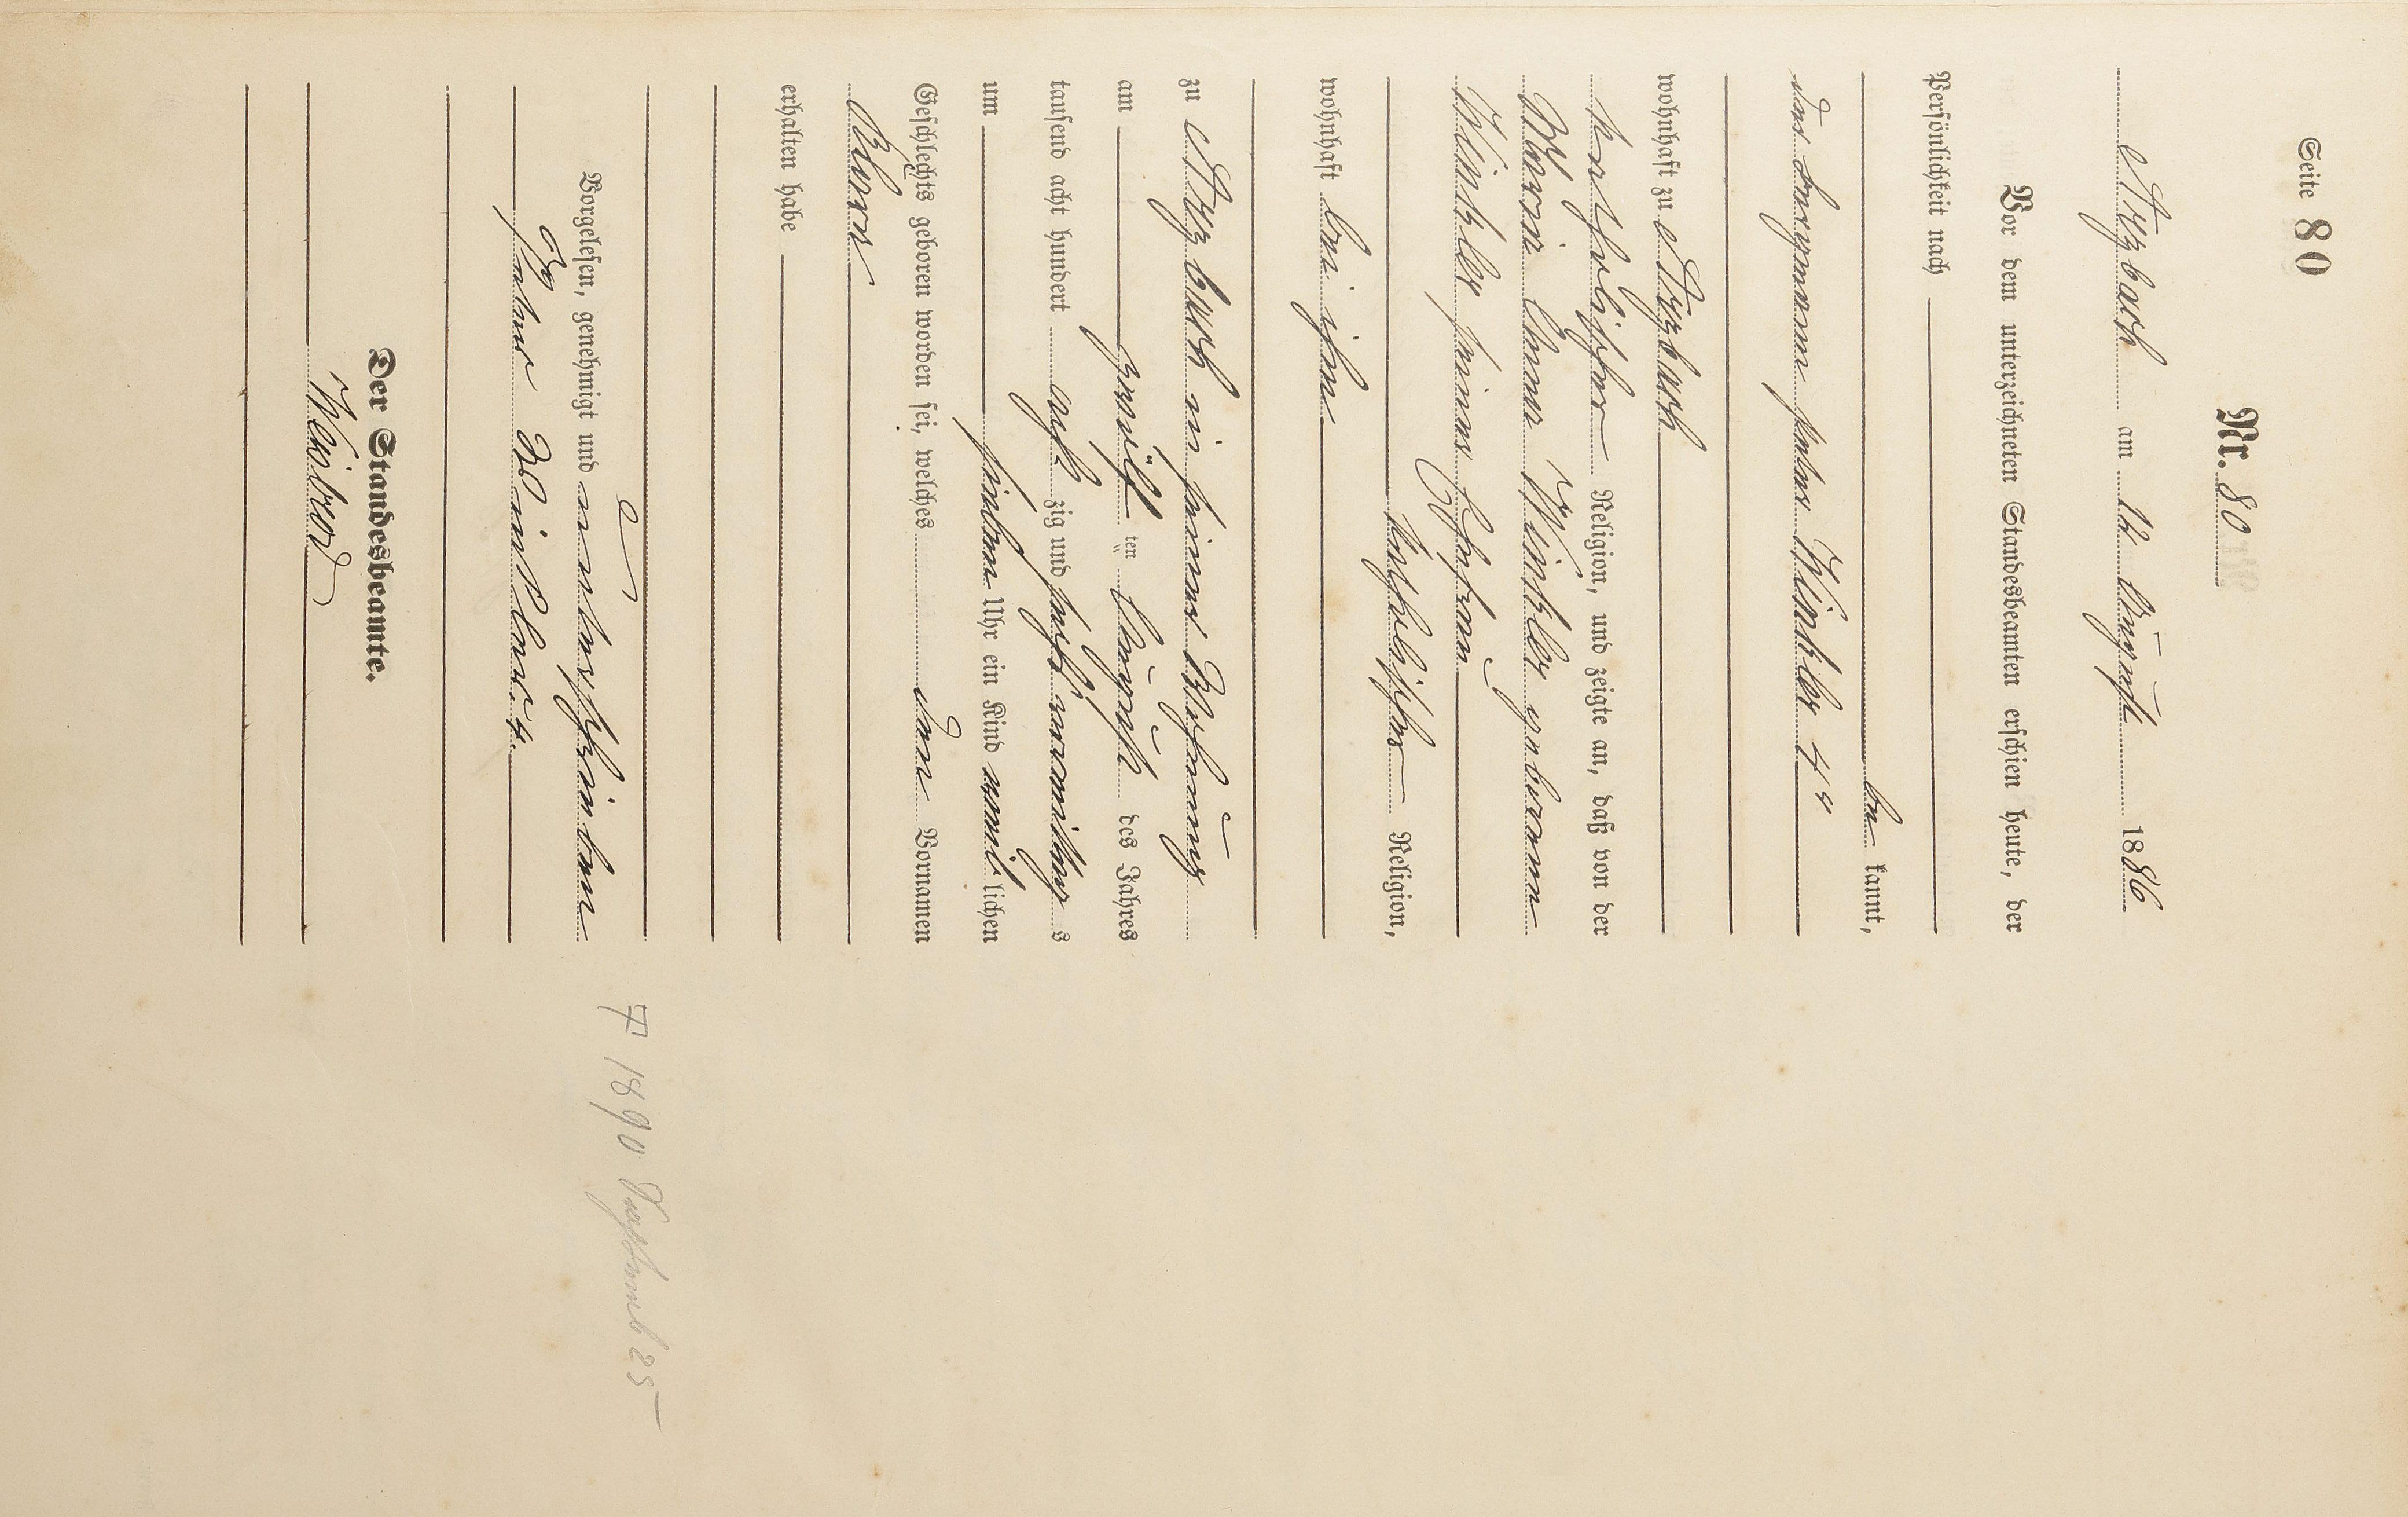 Seite 80
Nr. 80
Arzbach am 14 August 1886
Vor dem unterzeichneten Standesbeamten erschien heute, der
Persönlichkeit nach
be kannt,
der Bergmann Peter Winkler 4r
wohnhaft zu Arzbach
katholischer Religion, und zeigte an, daß von der
Maria Anna Winkler geborenen
Winkler seiner Ehefrau
katholischer Religion,
wohnhaft bei ihm
zu Arzbach in seiner Wohnung
am zwölf ten August des Jahres
tausend acht hundert acht zig und sechs vormittag s
um sieben Uhr ein Kind weib lichen
Geschlechts geboren worden sei, welches den Vornamen
Klara
erhalten habe
Vorgelesen, genehmigt und unterschrieben
Peter Winkler 4.
Der Standesbeamte.
Weisbrod
† 1890 Septemb 25